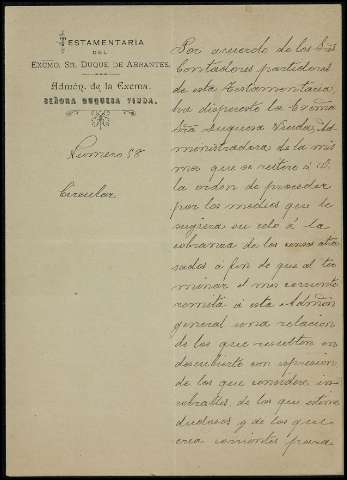 TESTAMENTARÍA
DEL
EXCMO. SR. DUQUE DE ABRANTES.
Admón. de la Excma.
SEÑORA DUQUESA VIUDA.
Numero 58
Circular
Por acuerdo de los Sres
Contadores partidores
de esta Testamentaría,
ha dispuesto la Excma
Sra Duquesa Viuda, Ad-
ministradora de la mis
ma que se reitere á V.
la orden de proceder
por los medios que le
sugiera su celo á la
cobranza de los censos atra
sados á fin de que al ter
minar el mes corriente
remita á esta Admon
general una relacion
de los que resulten en
descubierto con expresion
de los que considere in-
cobrables, de los que estime
dudosos y de los que
crea corrientes para